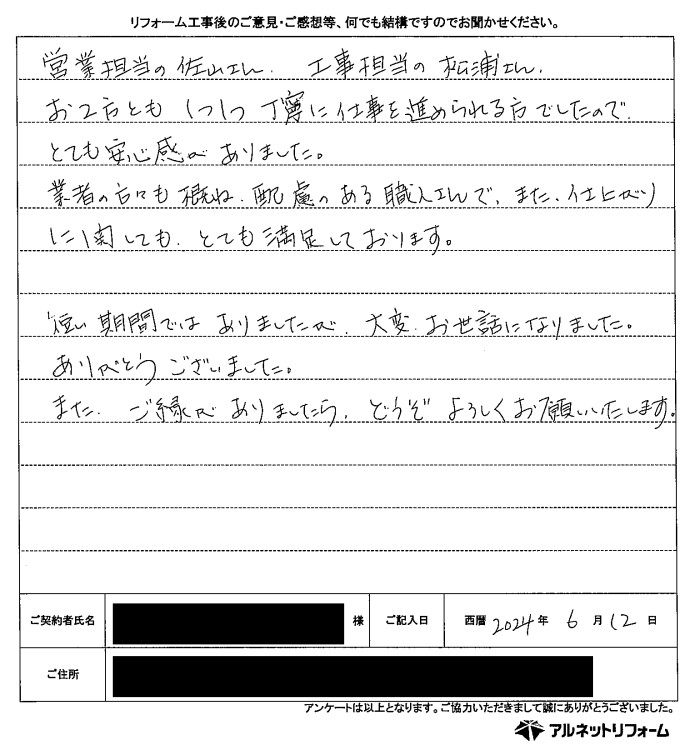 リフォーム工事後のご意見・ご感想等、何でも結構ですのでお聞かせください。
営業担当の佐山さん、工事担当の松浦さん、
お2方とも1つ1つ丁寧に仕事を進められる方でしたので、
とても安心感がありました。
業者の方々も概ね、配慮のある職人さんで、また、仕上がり
に関しても、とても満足しております。
短い期間ではありましたが、大変、お世話になりました。
ありがとうございました。
また、ご縁がありましたら、どうぞよろしくお願いいたします。
ご契約者氏名 様 ご記入日 西暦 2024 年 6 月 12 日
ご住所
アンケートは以上となります。ご協力いただきまして誠にありがとうございました。
アルネットリフォーム